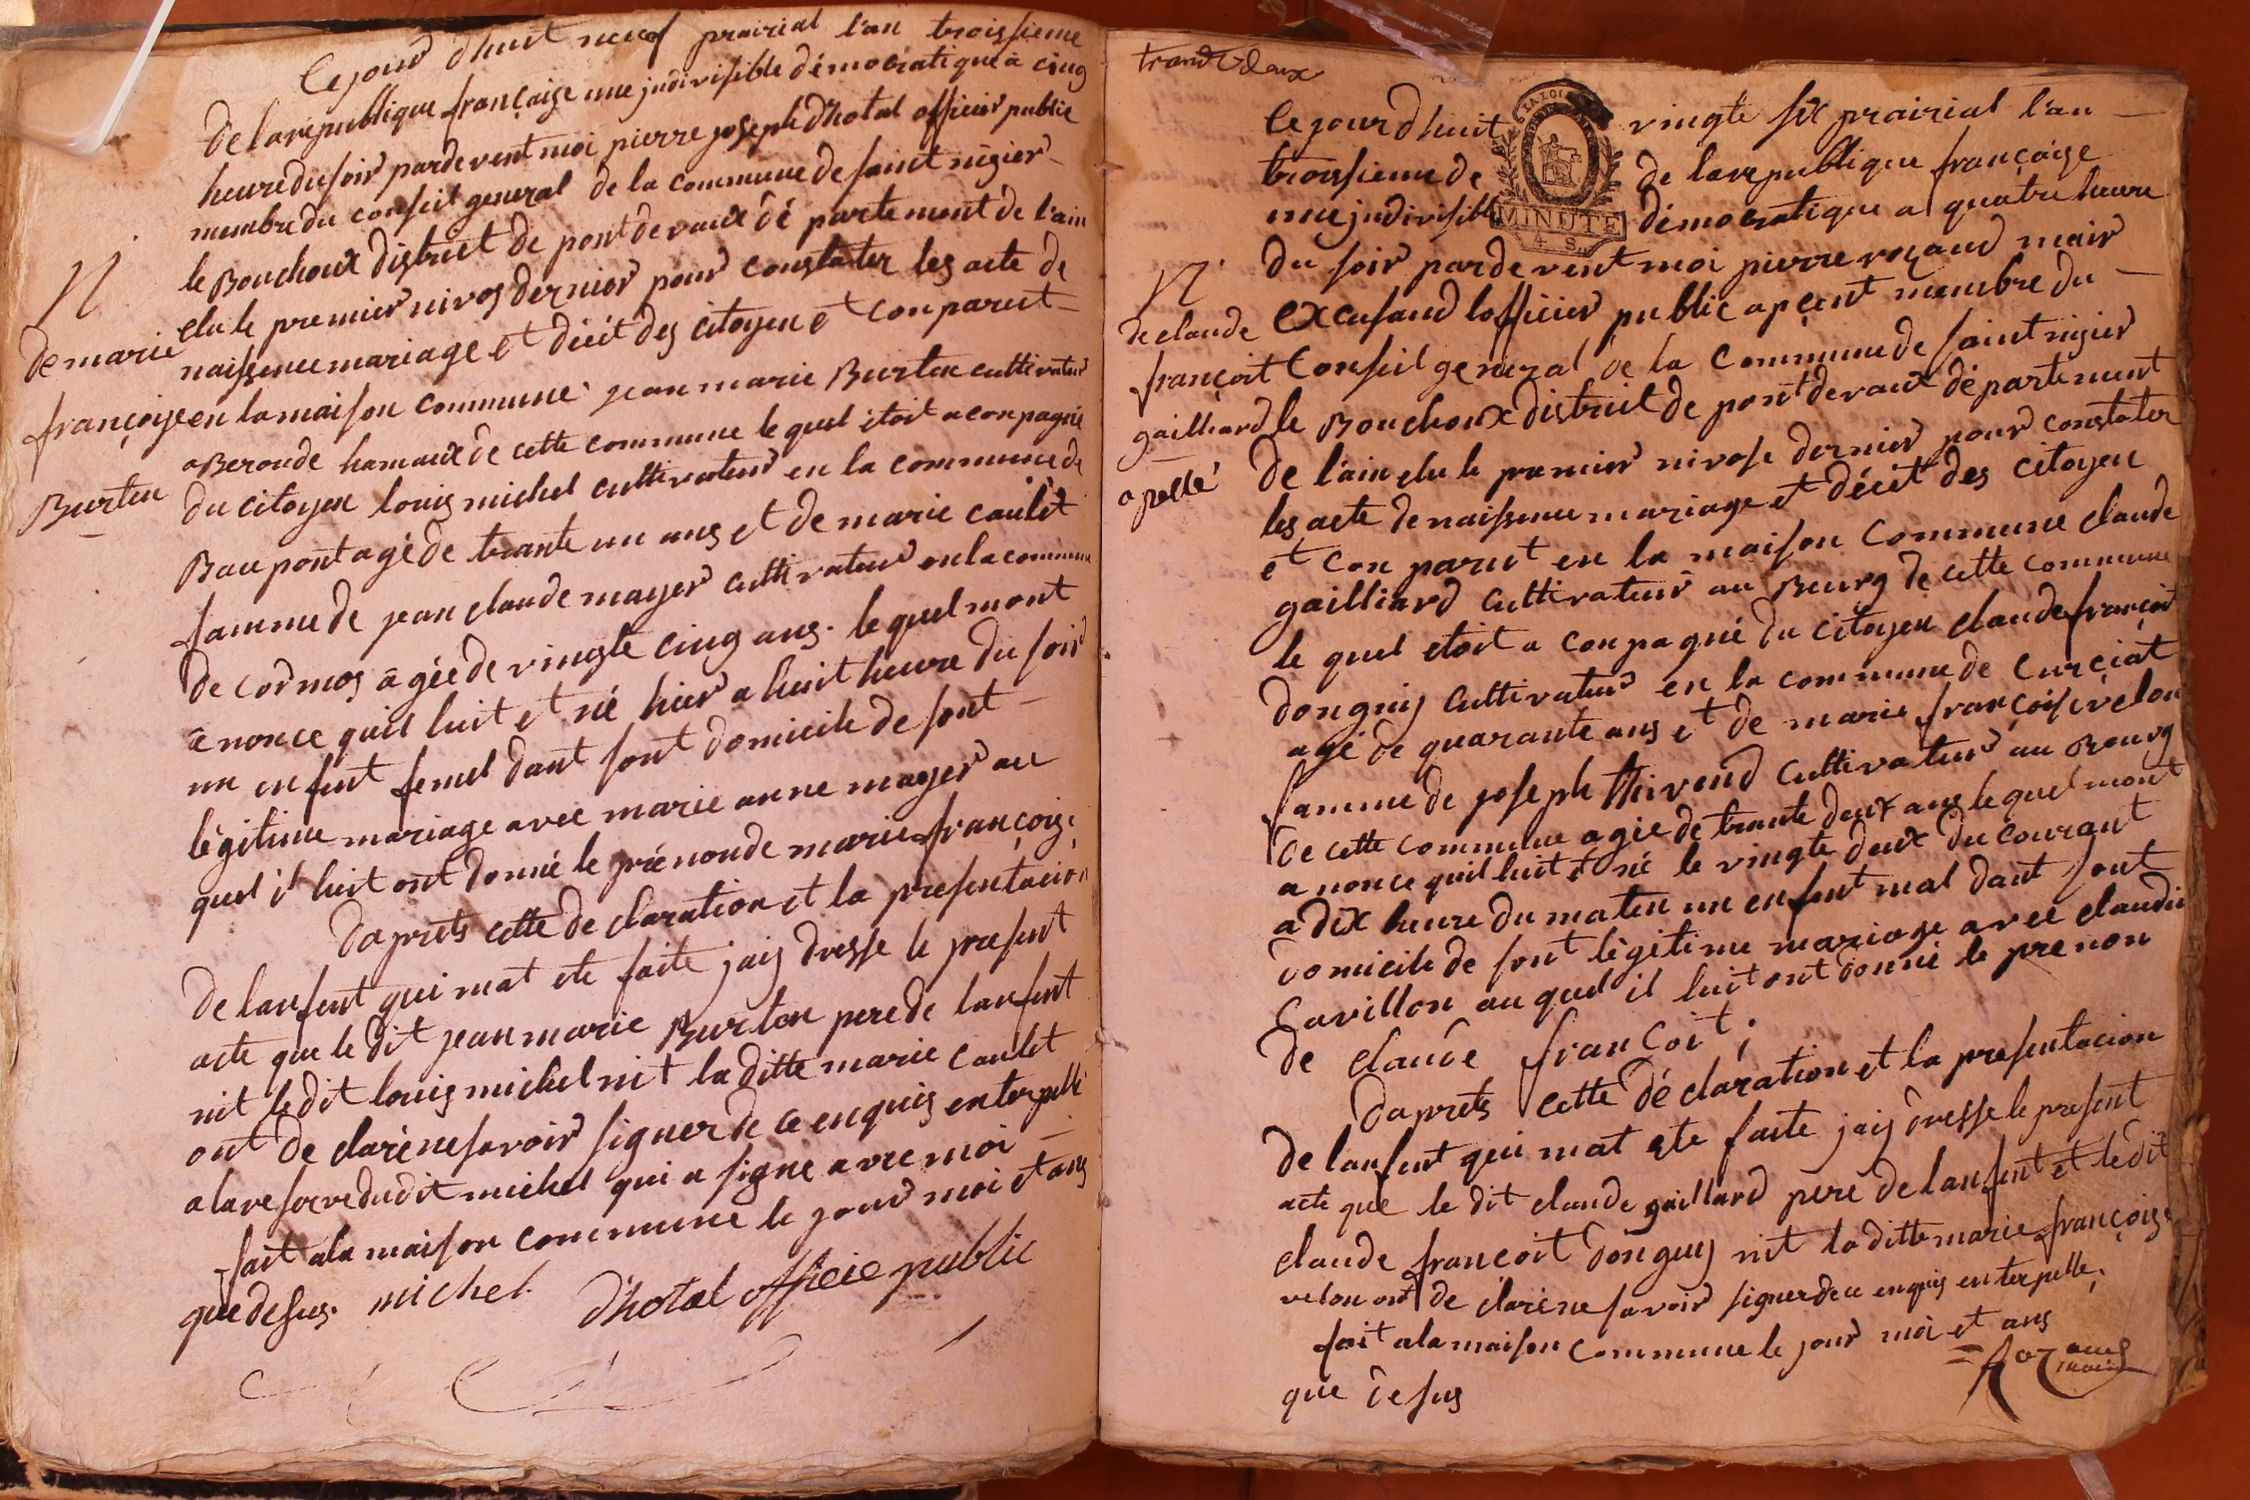 Cejourd huit neuf prairial l'an troissieme
de la republique françaize une judivisible démocratique à cinq
heure du soir pardevent moi pierre joseph d'hotal officier public
membre du conseil general de la commune de saint nigier
le Bouchoux district de pont de vaux dé partement de l'ain
elu le premier nivos dernier pour constater les acte de
naissence mariage et décit des citoyen et conparut
en la maison commune jean marie Burten cultivateur
a Beronde hamaux de cette commune le quel étoit aconpagné
du citoyen louis michel cultivateur en la commune de
Baupont agé de trante un ans et de marie caulet
famme de jean claude mayer cultivateur en la commune
de cormos agée de vingte cinq ans. le quel mont
anonce quil luit et né hier a huit heure du soir
un enfent femel dant sont domicile de sont
légitime mariage avec marie anne mayer au
quel il luit ont donné le prénon de marie françoize
daprets cette declaration et la presentacion
de lanfent qui mat ete faite jais dresse le present
acte que le dit jean marie Burten pere de lanfent
nit le dit louis michel nit la ditte marie caulet
ont de claré ne savoir signer de ce enquis enterpellé
a la reserve du dit michel qui a signe avec moi
fait ala maison commune le jour moi et ans
que desus. michel d'hotal officie public
N
de marie
françoize
Burten
trante deux
Cejourd huit vingte six prairial l'an
troissieme de de la republique françaize
une judivisible démocratique a quatre heure
MINUTE
4. S.
du soir pardevent moi pierre rozand mair
excusand lofficier public apçent membre du
Conseil general de la commune de saint nigier
le Bouchoux distruit de pont de vaux département
de l'ain elu le premier nivose dernier pour constater
les acte de naissence mariage et décit des citoyen
et con parut en la maison commune claude
gailliard cultivateur au Bourg de cette commune
le quel etoit a conpagné du citoyen claude françoit
donguy cultivateur en la commune de curciat
agé de quarante ans et de marie françoise velon
famme de joseph thivend cultivateur au Bourg
de cette commune agée de trante deux ans le quel mont
a nonce quil luit et né le vingte deux du courant
a dix heure du maten un enfent mal dant sont
domicile de sont légitime mariage avec claudie
Cavillon au quel il luit ont donné le prenon
de claude françoit;
daprets cette dé claration et la presentacion
de lanfent qui mat ete faite jais dresse le present
acte que le dit claude gaillard pere de lanfent et le dit
claude françoit donguy nit la ditte marie françoize
velon ont de claré ne savoir signer de ce enquis enterpelle,
fait ala maison commune le jour moi et ans
que desus
Rozand
mair
N
de claude
françoit
gailliard
apellé